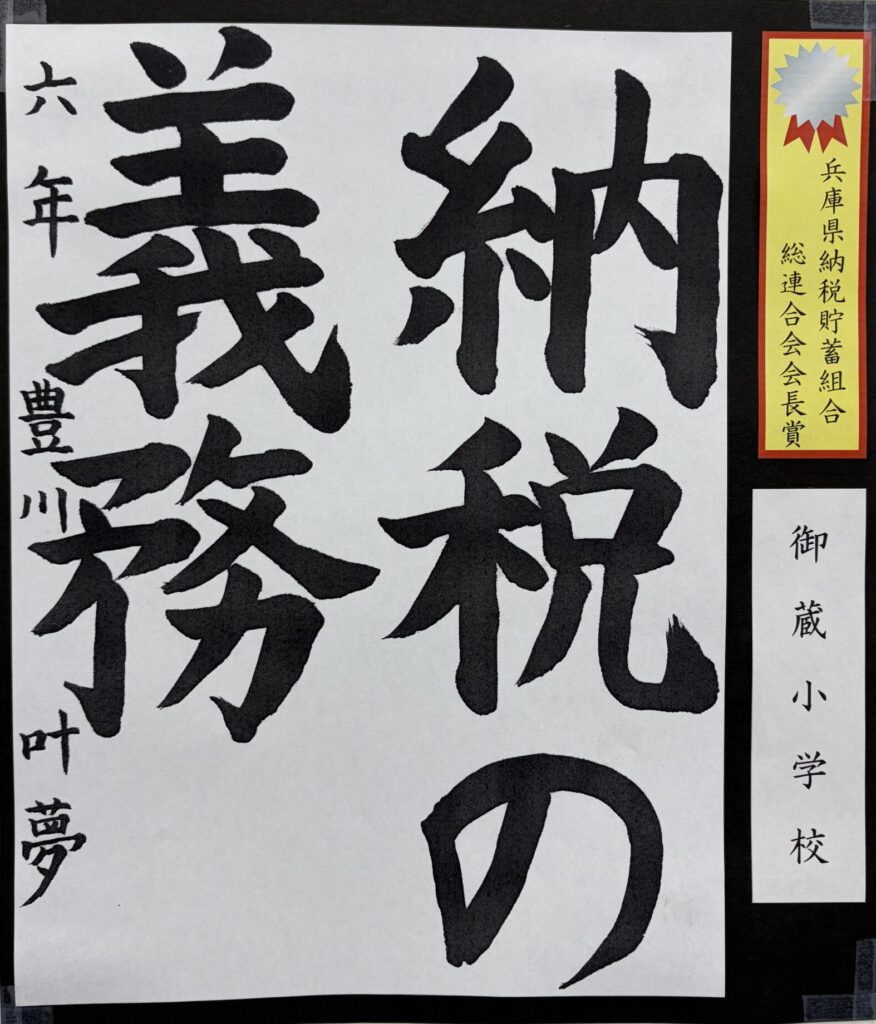 兵庫県納税貯蓄組合
総連合会会長賞
御蔵小学校
納税の
義務
六年 豊川叶夢